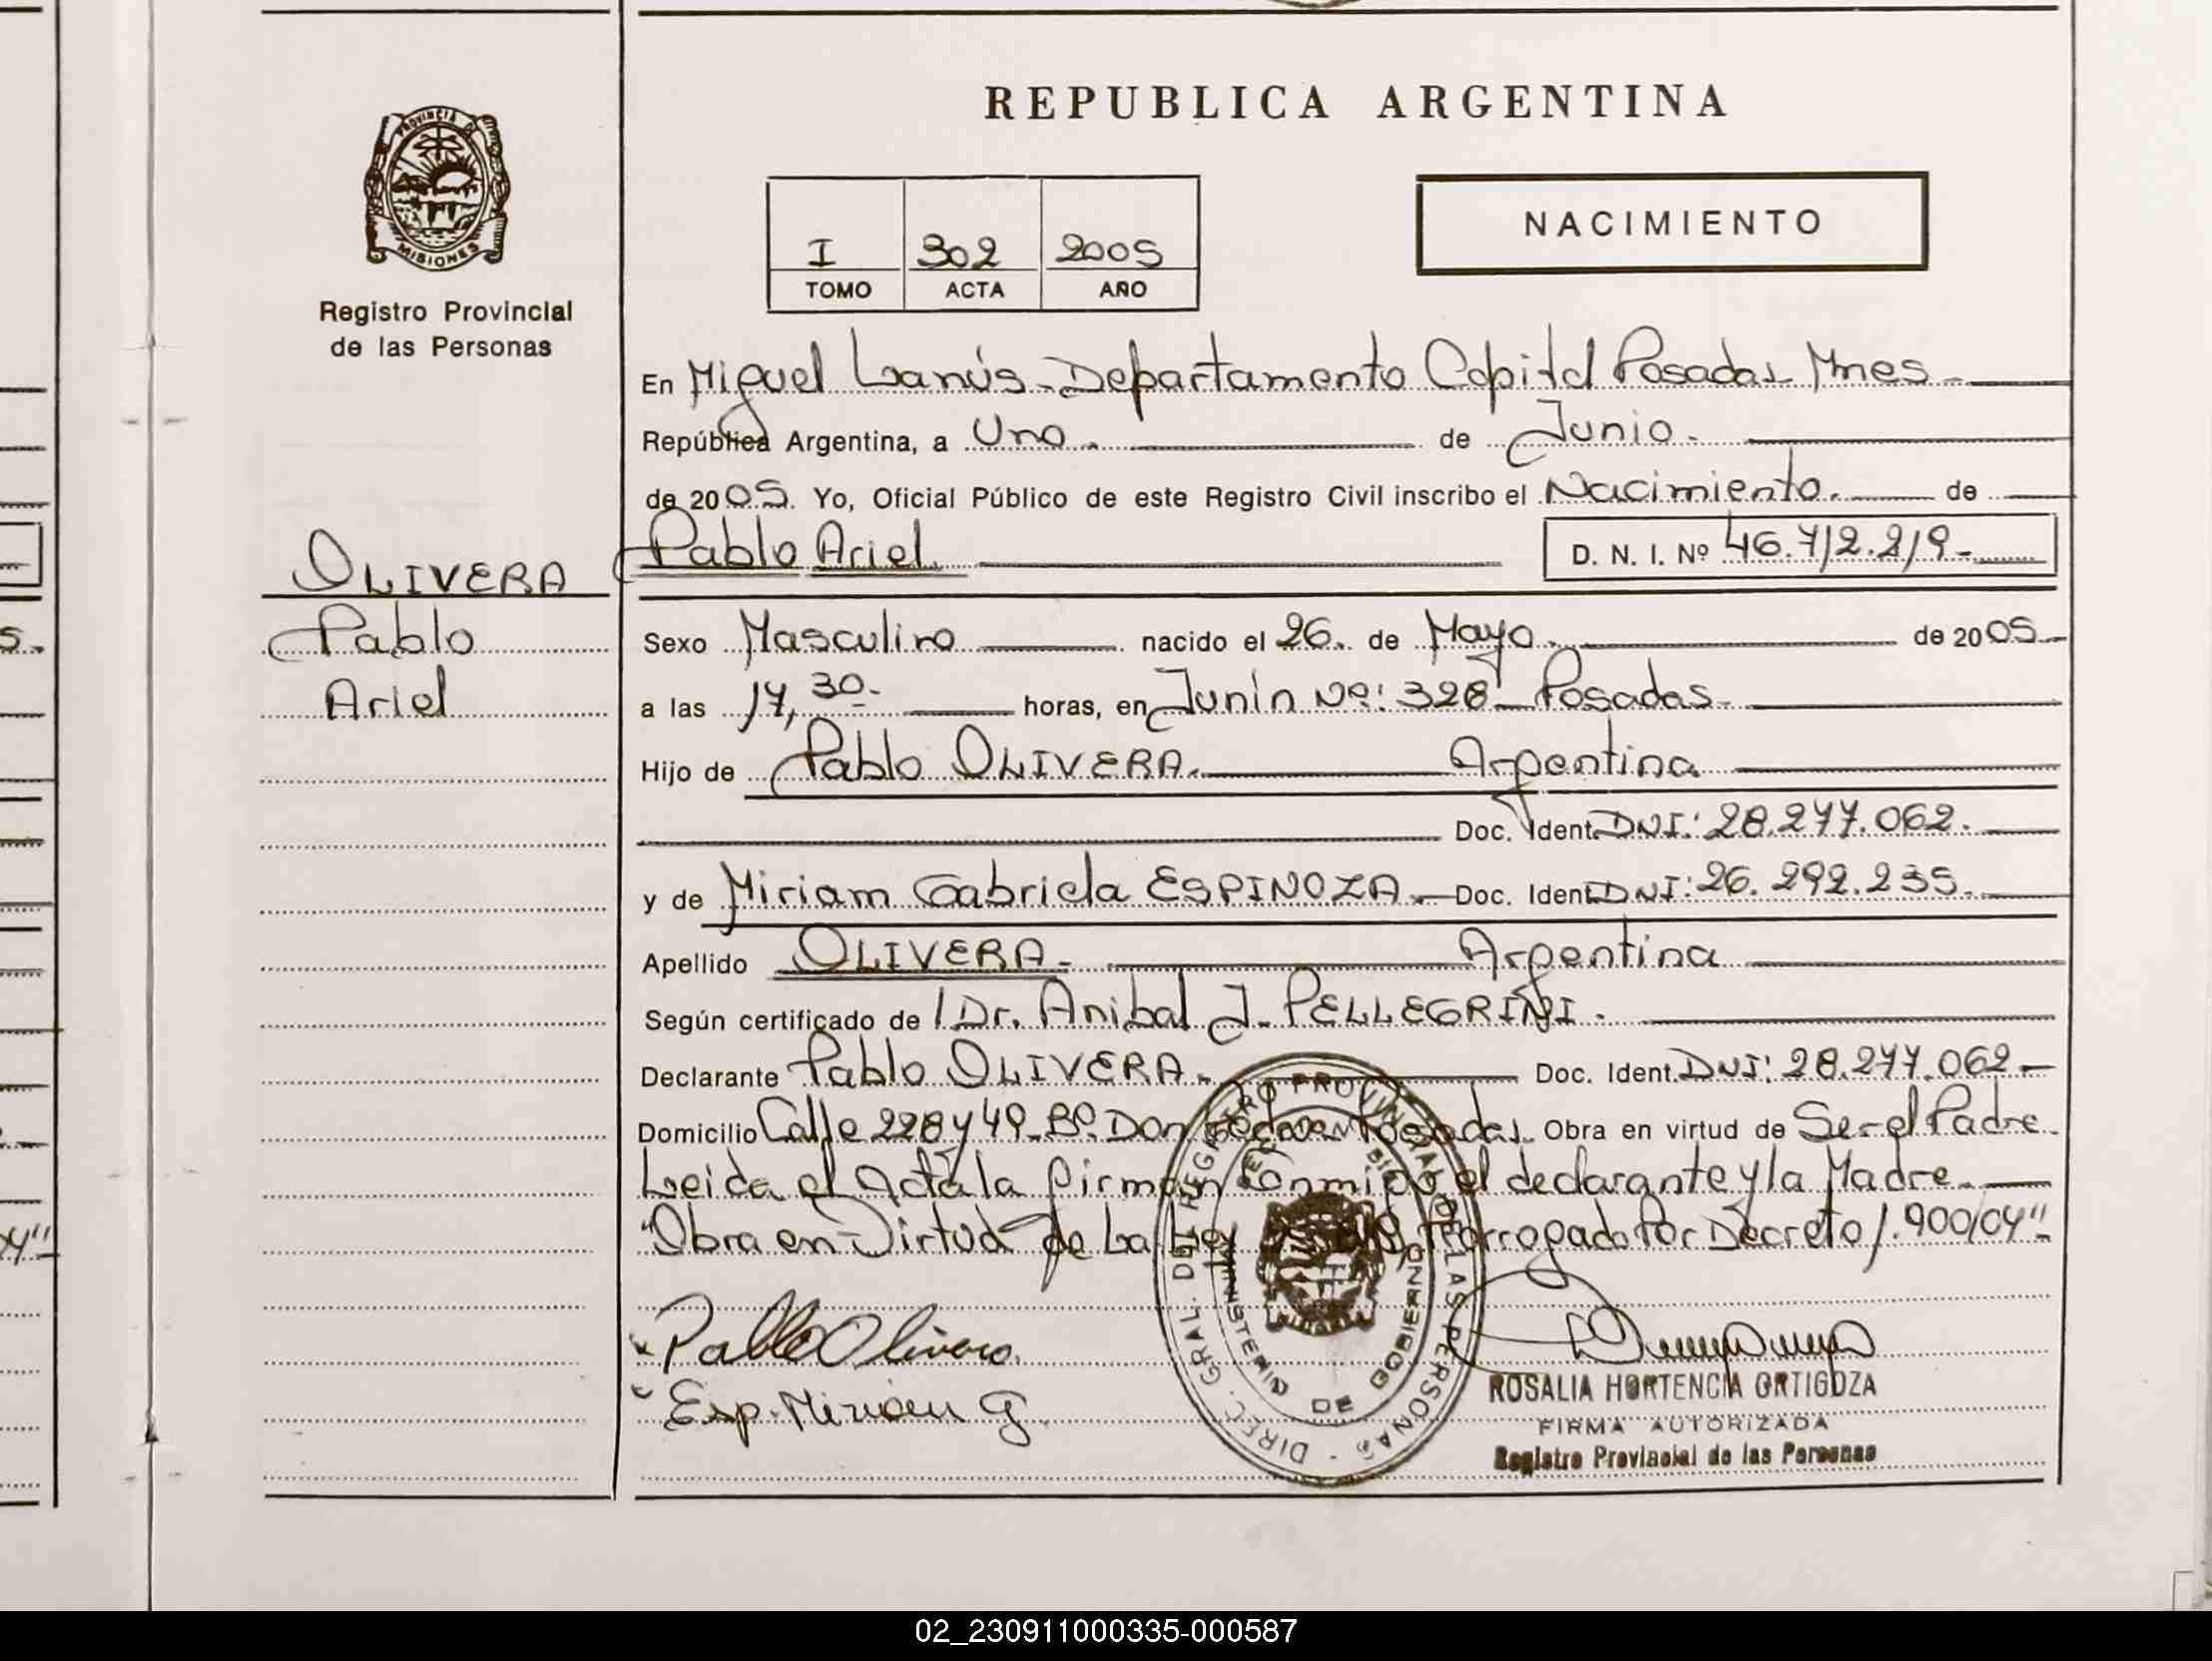 REPUBLICA ARGENTINA
PROVINCIA DE
MISIONES
Registro Provincial
de las Personas
NACIMIENTO
I 302 2005
TOMO ACTA AÑO
En Miguel Lanús - Departamento Capital Posadas Mnes -
República Argentina, a Uno. de Junio.
de 2005. Yo, Oficial Público de este Registro Civil inscribo el Nacimiento. de
OLIVERA
Pablo
Ariel
Pablo Ariel. D. N. I. Nº 46.712.219-
Sexo Masculino nacido el 26. de Mayo. de 2005
a las 17,30- horas, en Junín Nº: 328 - Posadas.
Hijo de Pablo OLIVERA. Argentina
Doc. Ident. DNI: 28.277.062.
y de Miriam Gabriela ESPINOZA. Doc. Ident. DNI: 26.292.235.
Apellido OLIVERA- Argentina
Según certificado de / Dr. Anibal J. PELLEGRINI.
Declarante Pablo OLIVERA. Doc. Ident. DNI: 28.277.062-
Domicilio Calle 228 y 49. Bº. Don Posadas. Obra en virtud de Ser el Padre.
Leida el Acta la firman Conmigo el declarante y la Madre.
"Obra en Virtud de La Ley Prorrogado Por Decreto 1.900/04"
Pablo Olivera
Esp. Miriam G.
DIREC. GRAL. DEL REGISTRO PROVINCIAL DE LAS PERSONAS
MINISTERIO DE GOBIERNO
ROSALIA HORTENCIA ORTIGOZA
FIRMA AUTORIZADA
Registro Provincial de las Personas
02_230911000335-000587